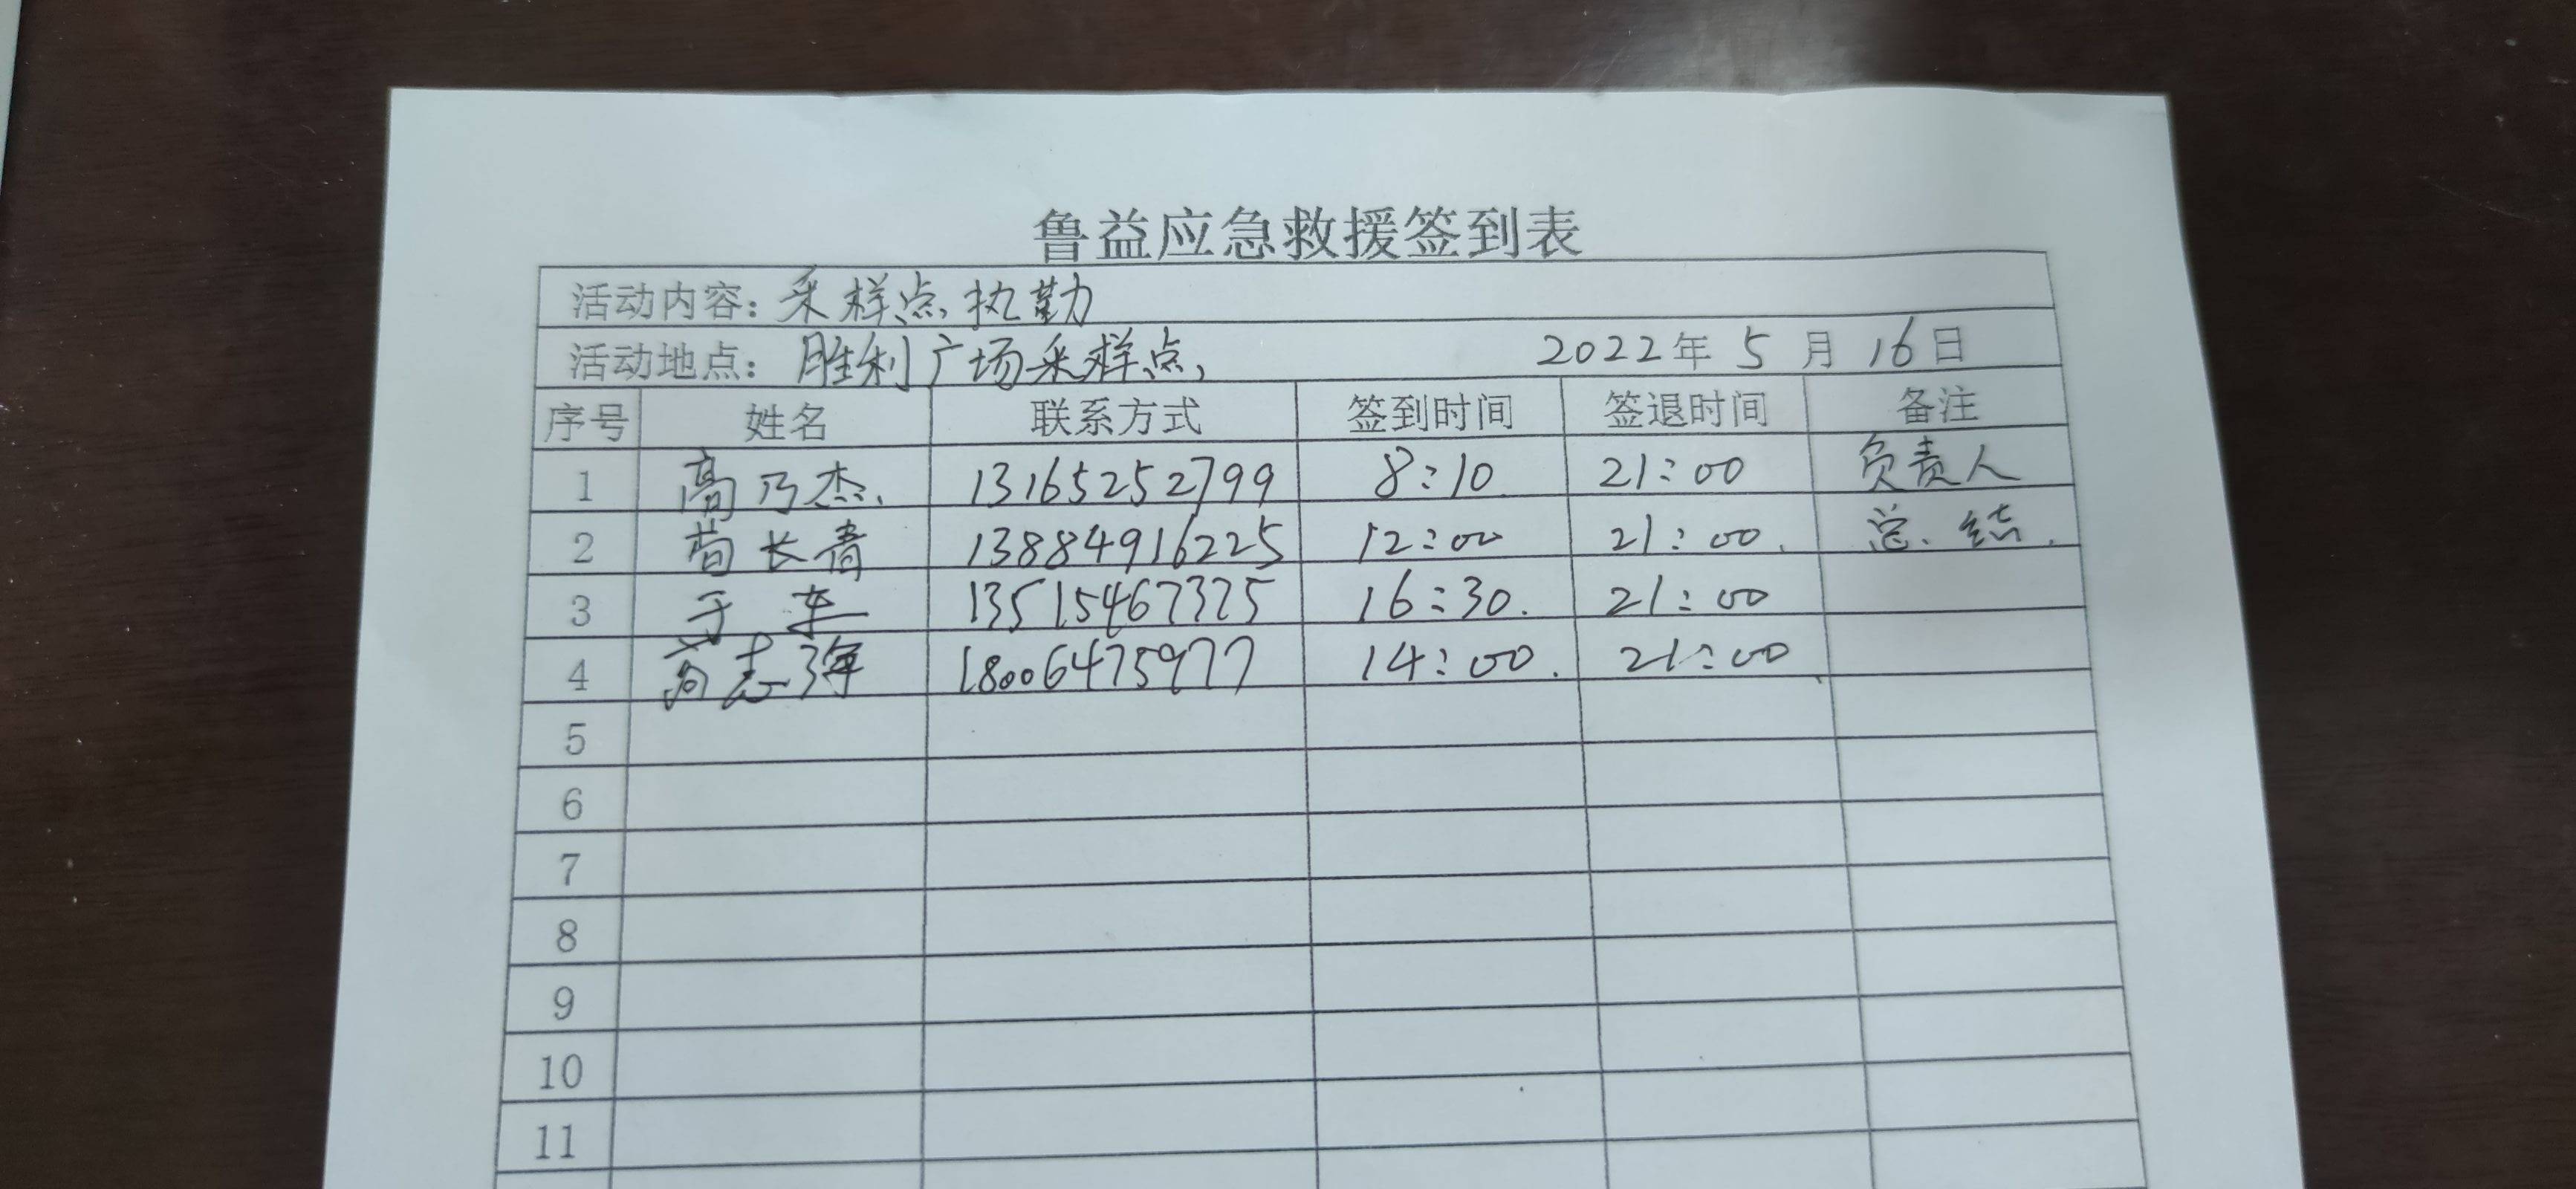 鲁益应急救援签到表
活动内容：采样点执勤
活动地点：胜利广场采样点 2022年5月16日
序号 姓名 联系方式 签到时间 签退时间 备注
1 高乃杰 13165252799 8:10 21:00 负责人
2 苗长青 13884916225 12:00 21:00 总结
3 于 13515467375 16:30 21:00
4 志强 18006475977 14:00 21:00
5
6
7
8
9
10
11